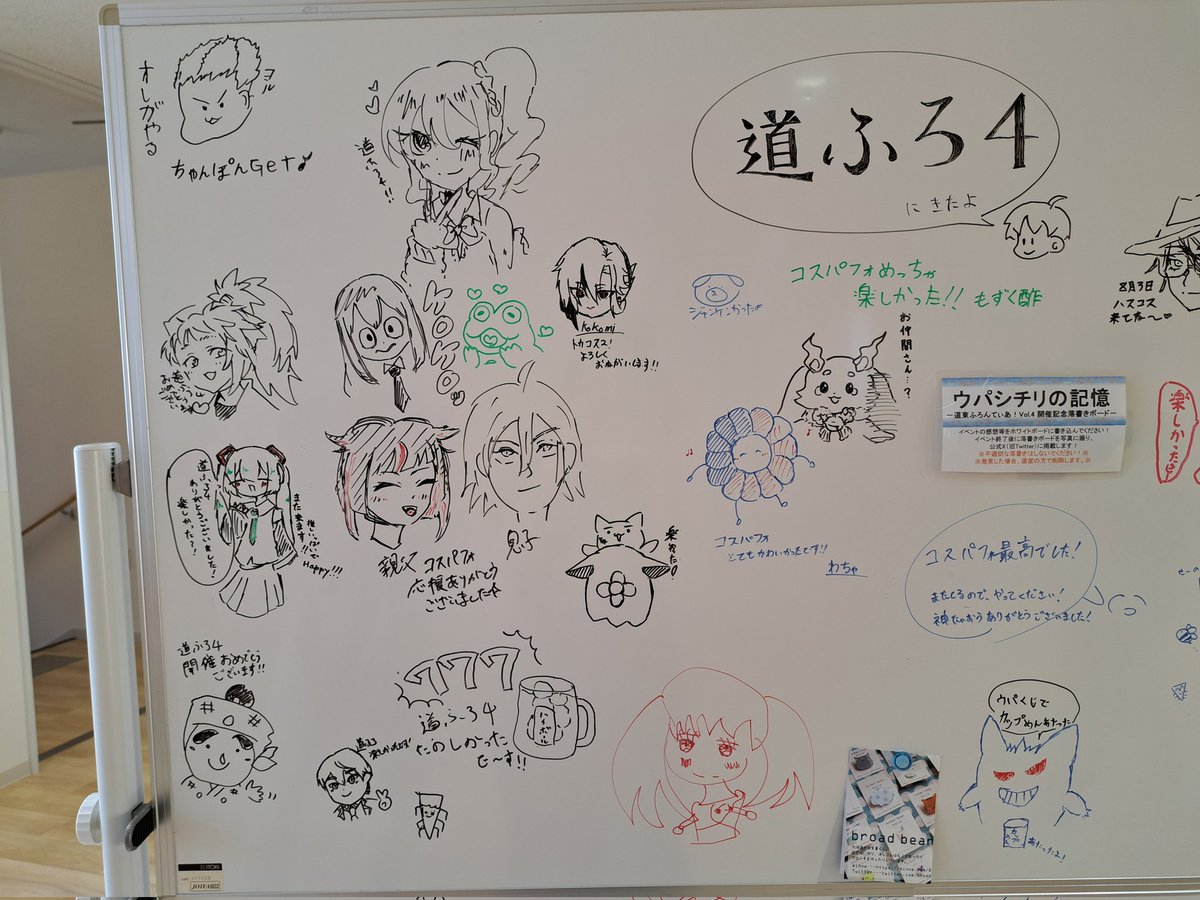 オレがヤル
ヨル
ちゃんぽんGet♪
道ふろ4
にきたよ
8月3日
ハスコス
来てな〜♡
コスパフォめっちゃ
楽しかった!! もずく酢
お仲間さん…?
kokomi
トカコスコ!
よろしく
おねがいします!!
ウパシチリの記憶
ー道東ふろんてぃあ!Vol.4 開催記念落書きボードー
イベントの感想等をホワイトボードに書き込んでください!
イベント終了後に落書きボードを写真に撮り、
公式X(旧Twitter)に掲載します!
※不適切な落書きはしないでください!※
※発見した場合、運営の方で削除します。※
楽しかった
道ふろ4
ありがとう
ございました!
楽しかった〜!
また来ます!!
Happy!!!
親父
コスパフォ
応援ありがとう
ございました☆
息子
コスパフォ
とてもかわいかったです!!
わちゃ
コスパフォ最高でした!
またくるので、やってください!
ありがとうございました!
道ふろ4
開催おめでとう
ございます!!
777
道ふろ4
たのしかった
で〜す!!
ハイボール
ウパくじで
カップめんあたった
あたったよ!
broad bean